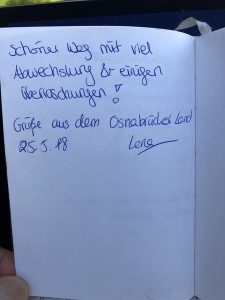 Schöner Weg mit viel
Abwechslung & einigen
Überraschungen!
Grüße aus dem Osnabrücker Land
25.5.18 Lena